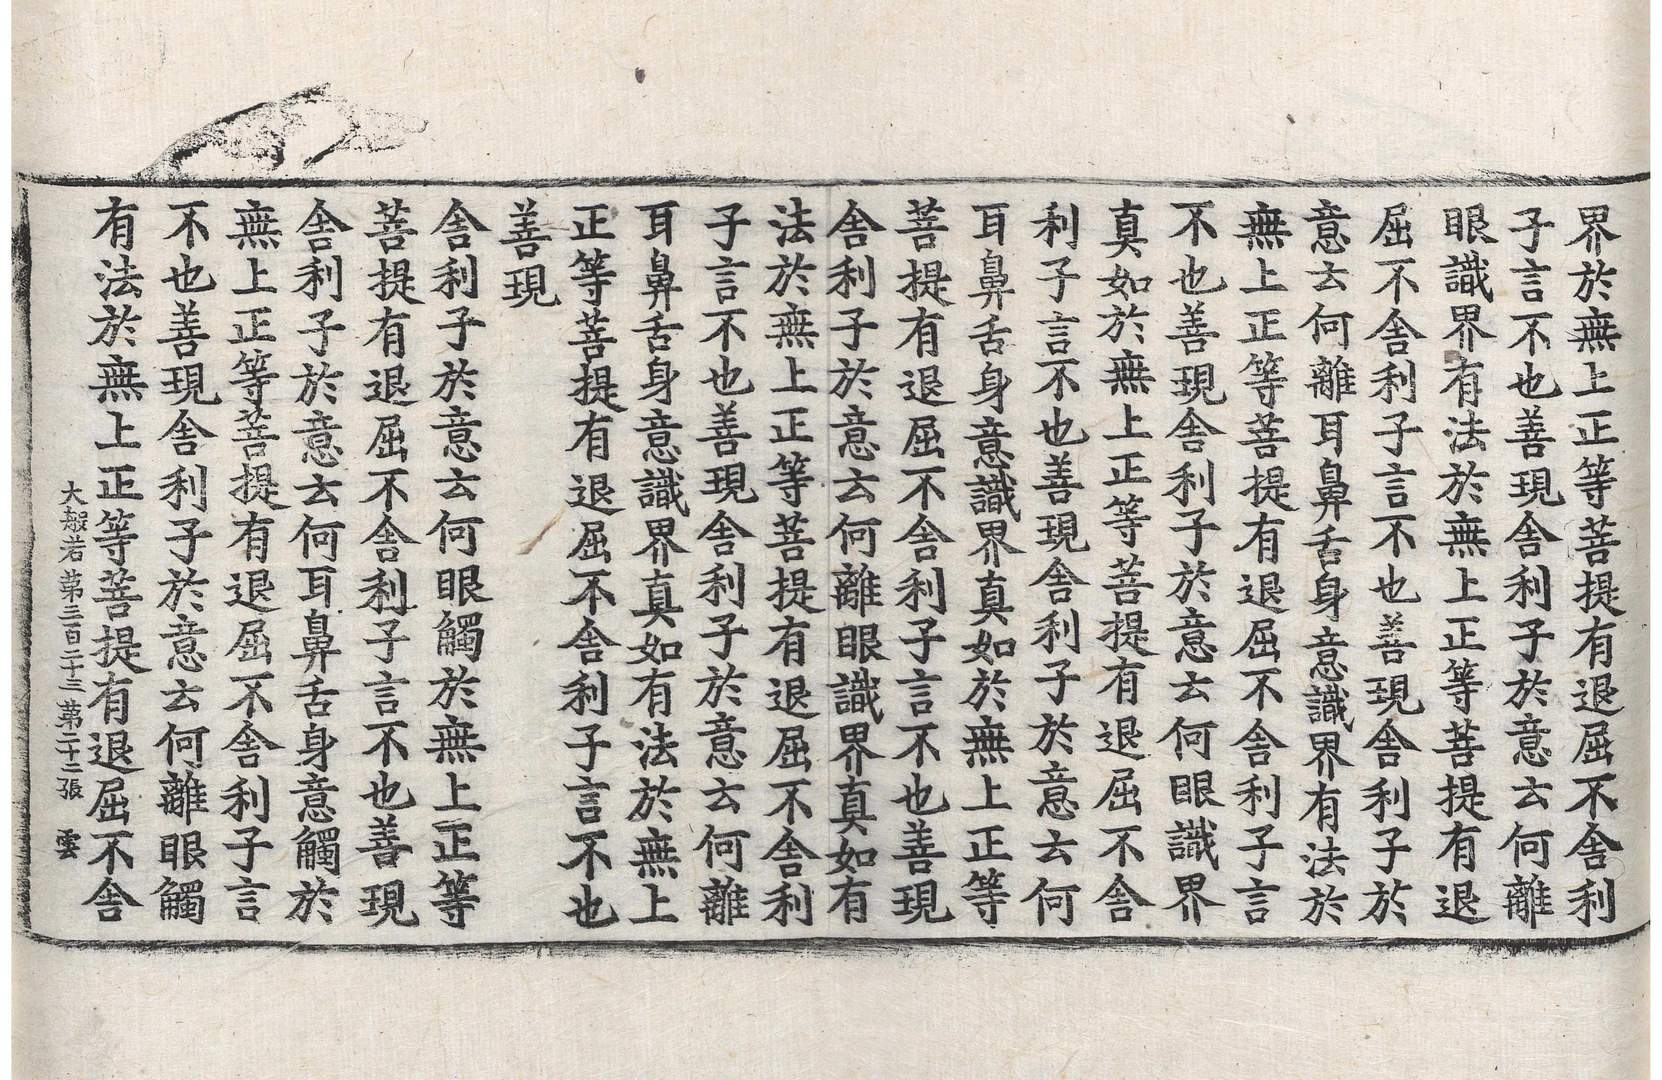 界於無上正等菩提有退屈不舍利
子言不也善現舍利子於意云何離
眼識界有法於無上正等菩提有退
屈不舍利子言不也善現舍利子於
意云何離耳鼻舌身意識界有法於
無上正等菩提有退屈不舍利子言
不也善現舍利子於意云何眼識界
真如於無上正等菩提有退屈不舍
利子言不也善現舍利子於意云何
耳鼻舌身意識界真如於無上正等
菩提有退屈不舍利子言不也善現
舍利子於意云何離眼識界真如有
法於無上正等菩提有退屈不舍利
子言不也善現舍利子於意云何離
耳鼻舌身意識界真如有法於無上
正等菩提有退屈不舍利子言不也
善現
舍利子於意云何眼觸於無上正等
菩提有退屈不舍利子言不也善現
舍利子於意云何耳鼻舌身意觸於
無上正等菩提有退屈不舍利子言
不也善現舍利子於意云何離眼觸
有法於無上正等菩提有退屈不舍
大般若第三百二十三 第二十二張 雲